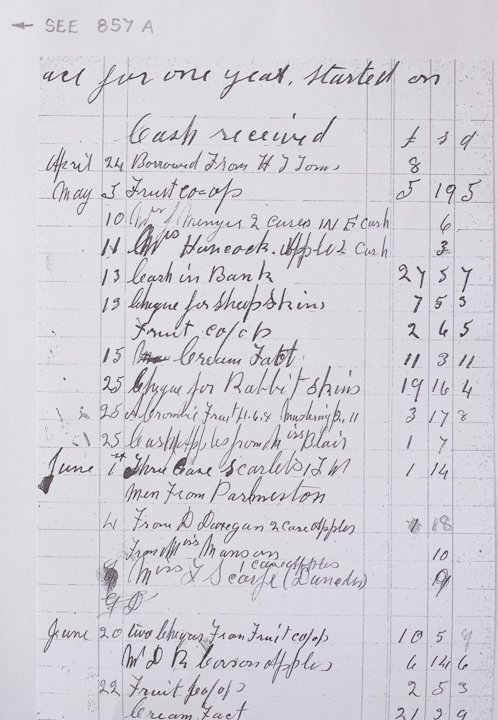 ← SEE 857 A
acc for one year, started on
Cash received £ s d
April 24 Borrowed From H J Toms 8
May 5 Fruit coop 5 19 5
10 2 cases IN E cash 6
11 Hancock. apple 2 cash 3
13 Cash in Bank 27 5 7
13 Cheque for Sheepskins 7 5 3
Fruit co/op 2 6 5
15 Cream Fact 11 3 11
25 Cheque for Rabbit Skins 19 16 4
25 Fruit 11.6.8 3 17 8
25 Cash Apples from Miss Blair 1 7
June 1st Three Case Scarlets
1 14
Men From Palmerston
4 From D Duregan 2 case Apples 1 18
From Mrs Manson 10
case apples
Miss I Scarfe (Dunedin) 9
9
June 20 two Cheques From Fruit coop 10 5 9
Mr D R Corson apples 6 14 6
22 Fruit coop 2 5 3
Cream Fact 21 3 9